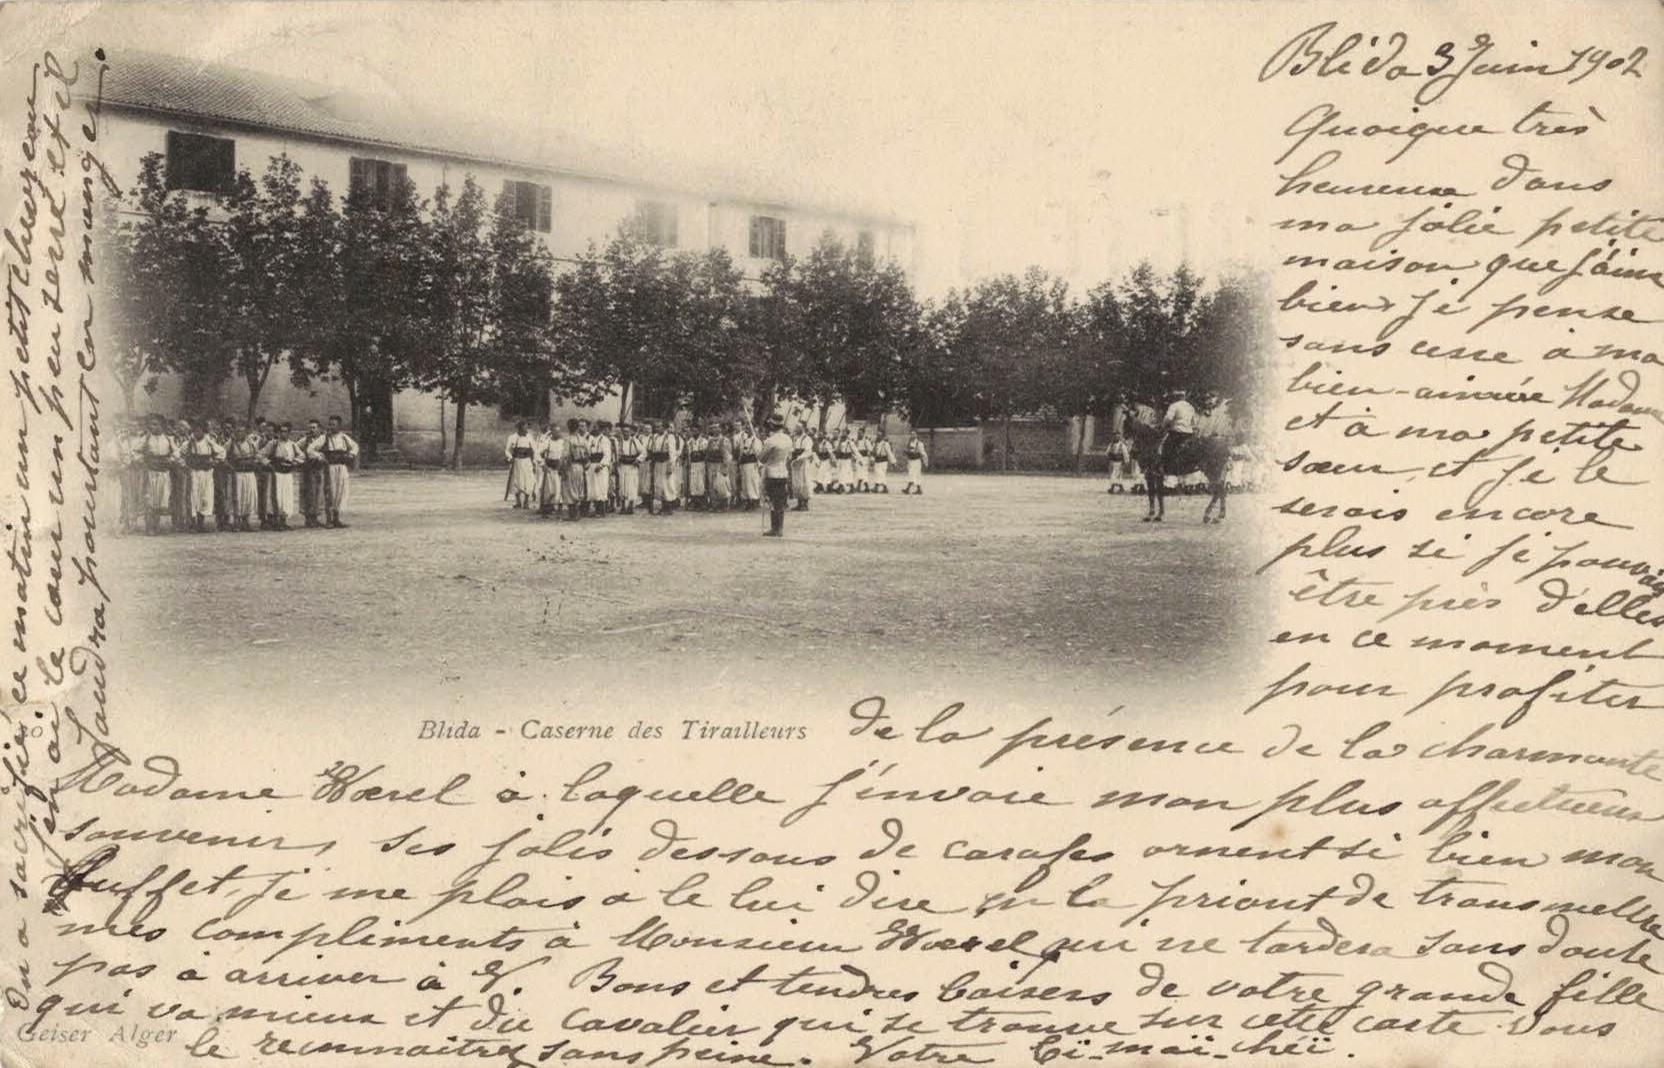 Blida 3 Juin 1902
Quoique très
heureuse dans
ma jolie petite
maison que j'aime
bien je pense
sans cesse à ma
bien-aimée Madame
et à ma petite
sœur, et je le
serais encore
plus si je pouvais
être près d'elles
en ce moment
pour profiter
Blida - Caserne des Tirailleurs
de la présence de la charmante
Madame à laquelle j'envoie mon plus affectueux
souvenir, ses jolis dessous de carafes ornent si bien mon
buffet, je me plais à le lui dire en la priant de transmettre
mes compliments à Monsieur qui ne tardera sans doute
pas à arriver à V. Bons et tendres baisers de votre grande fille
qui va mieux et du cavalier qui se trouve sur cette carte. Vous
le reconnaitrez sans peine. Votre Bï-maï-heï.
Geiser Alger
On a sacrifié ce matin un petit chevreau
j'en ai le cœur un peu serré et il
faudra pourtant en manger.